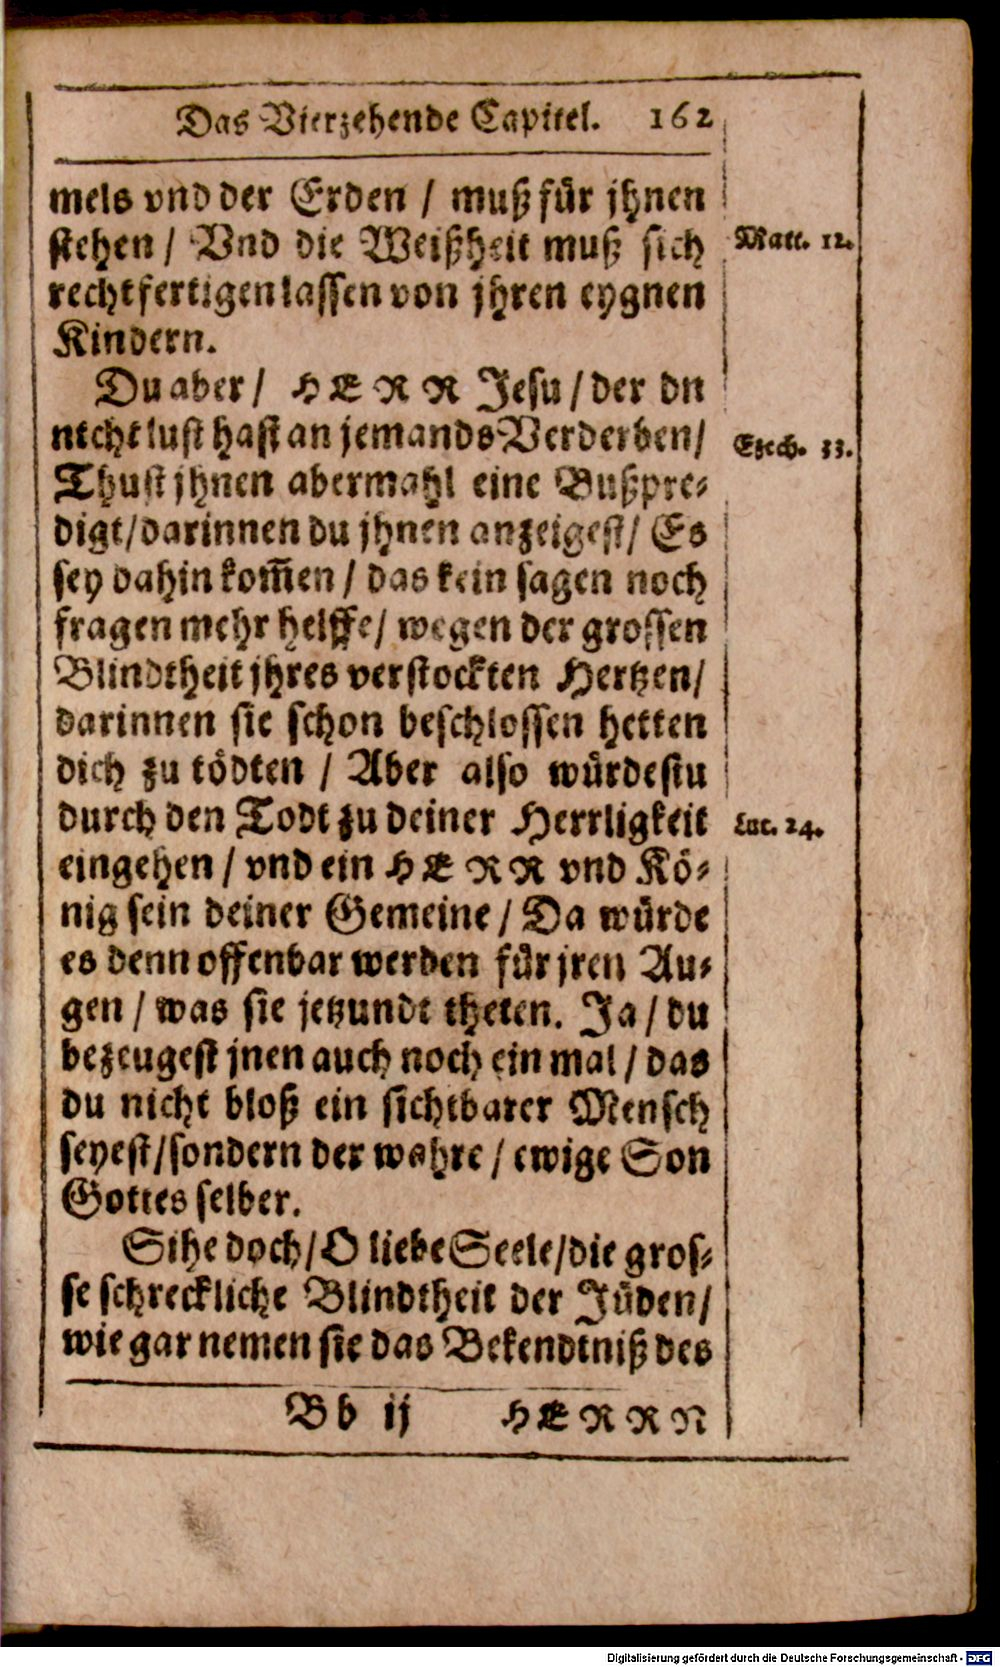 Das Vierzehende Capitel. 162
mels vnd der Erden / muß für jhnen
stehen / Vnd die Weißheit muß sich
Matt. 12.
rechtfertigen lassen von jhren eygnen
Kindern.
Du aber / HERR Jesu / der du
nicht lust hast an jemands Verderben /
Ezech. 33.
Thust jhnen abermahl eine Bußpre-
digt / darinnen du jhnen anzeigest / Es
sey dahin kom̃en / das kein sagen noch
fragen mehr helffe / wegen der grossen
Blindtheit jhres verstockten Hertzen /
darinnen sie schon beschlossen hetten
dich zu tödten / Aber also würdestu
durch den Todt zu deiner Herrligkeit
Luc. 24.
eingehen / vnd ein HERR vnd Kö-
nig sein deiner Gemeine / Da würde
es denn offenbar werden für jren Au-
gen / was sie jetzundt theten. Ja / du
bezeugest jnen auch noch ein mal / das
du nicht bloß ein sichtbarer Mensch
seyest / sondern der wahre / ewige Son
Gottes selber.
Sihe doch / O liebe Seele / die gros-
se schreckliche Blindtheit der Jüden /
wie gar nemen sie das Bekendtniß des
Bb ij HERRN
Digitalisierung gefördert durch die Deutsche Forschungsgemeinschaft - DFG